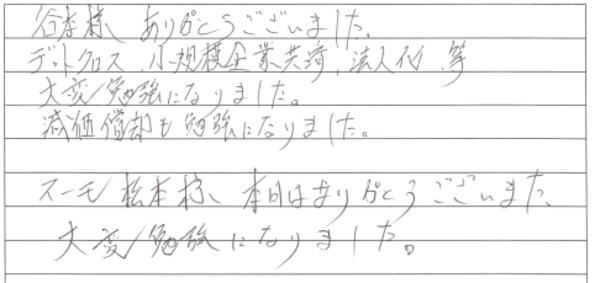 谷本様 ありがとうございました。
デットクロス、小規模企業共済、法人化、等
大変勉強になりました。
減価償却も勉強になりました。
スーモ松本様、本日はありがとうございました
大変勉強になりました。